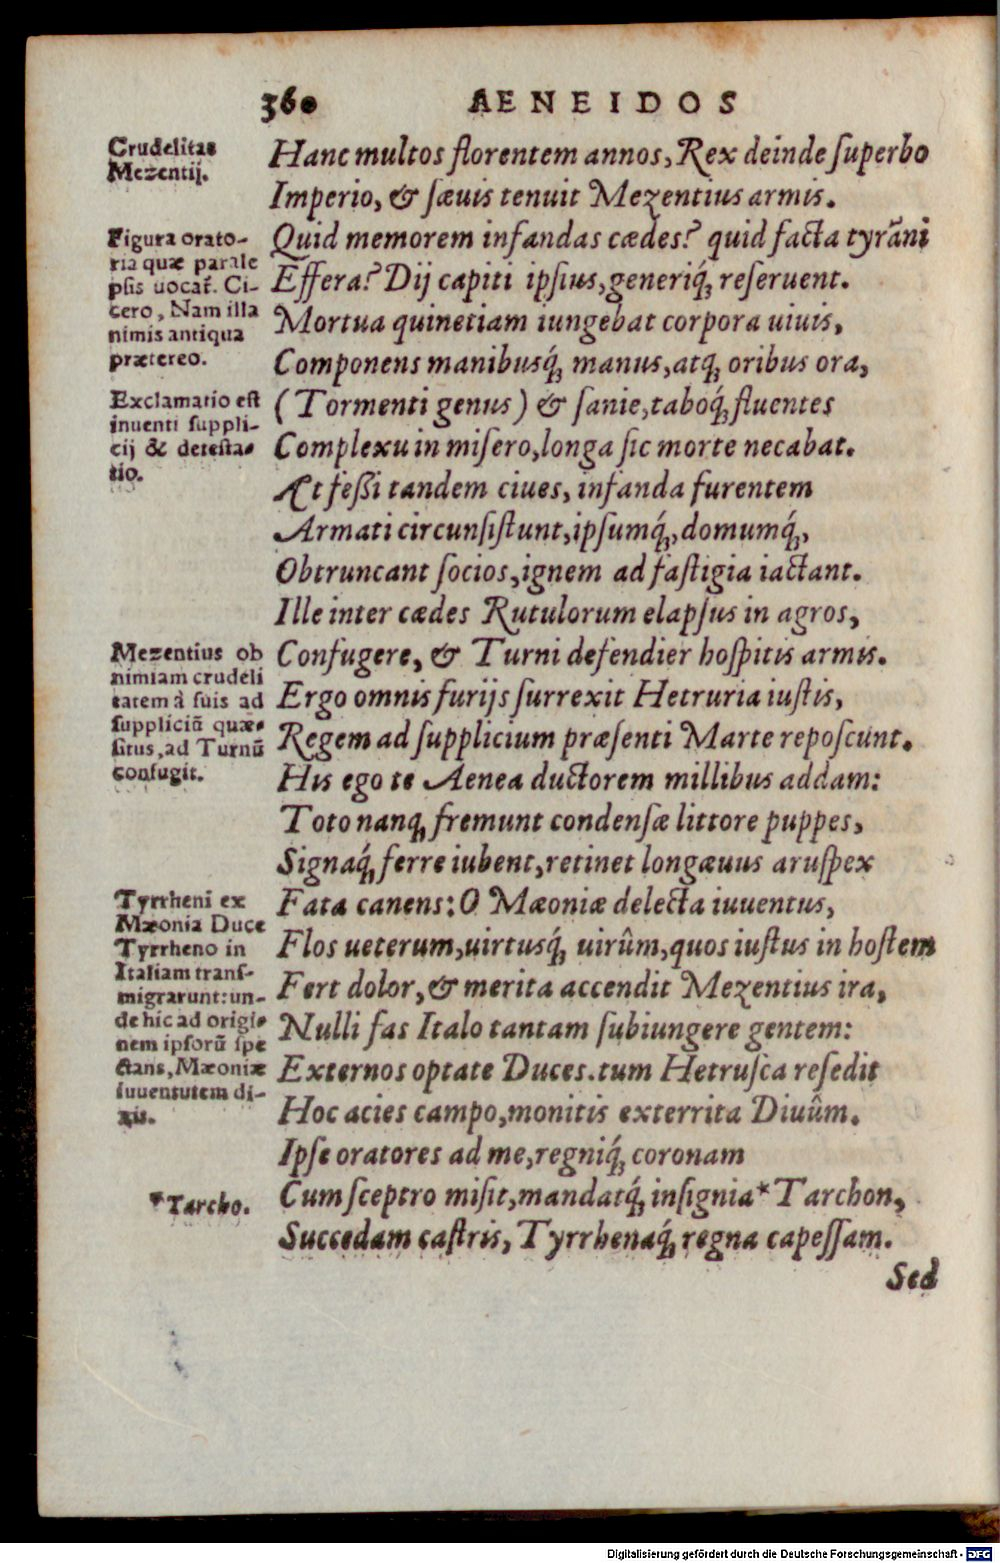 360 AENEIDOS
Crudelitas
Mezentij.
Hanc multos florentem annos, Rex deinde ſuperbo
Imperio, & ſæuis tenuit Mezentius armis.
Figura orato-
ria quæ parale
pſis uocat̄. Ci-
cero, Nam illa
nimis antiqua
prætereo.
Quid memorem infandas cædes? quid facta tyrāni
Effera? Dij capiti ipſius, generiq́; reſeruent.
Mortua quinetiam iungebat corpora uiuis,
Componens manibusq́; manus, atq; oribus ora,
Exclamatio eſt
inuenti ſuppli-
cij & deteſta-
tio.
(Tormenti genus) & ſanie, taboq́; fluentes
Complexu in miſero, longa ſic morte necabat.
At feßi tandem ciues, infanda furentem
Armati circunſiſtunt, ipſumq́;, domumq́;,
Obtruncant ſocios, ignem ad faſtigia iactant.
Ille inter cædes Rutulorum elapſus in agros,
Mezentius ob
nimiam crudeli
tatem à ſuis ad
ſuppliciū quæ-
ſitus, ad Turnū
confugit.
Confugere, & Turni defendier hoſpitis armis.
Ergo omnis furijs ſurrexit Hetruria iuſtis,
Regem ad ſupplicium præſenti Marte repoſcunt.
His ego te Aenea ductorem millibus addam:
Toto nanq; fremunt condenſæ littore puppes,
Signaq́; ferre iubent, retinet longæuus aruſpex
Tyrrheni ex
Mæonia Duce
Tyrrheno in
Italiam tranſ-
migrarunt: un-
de hic ad origi-
nem ipſorū ſpe
ctans, Mæoniæ
iuuentutem di-
xit.
Fata canens: O Mæoniæ delecta iuuentus,
Flos ueterum, uirtusq́; uirûm, quos iuſtus in hoſtem
Fert dolor, & merita accendit Mezentius ira,
Nulli fas Italo tantam ſubiungere gentem:
Externos optate Duces. tum Hetruſca reſedit
Hoc acies campo, monitis exterrita Diuûm.
Ipſe oratores ad me, regniq́; coronam
*Tarcho.
Cum ſceptro miſit, mandatq́; inſignia* Tarchon,
Succedam caſtris, Tyrrhenaq́; regna capeſſam.
Sed
Digitalisierung gefördert durch die Deutsche Forschungsgemeinschaft - DFG